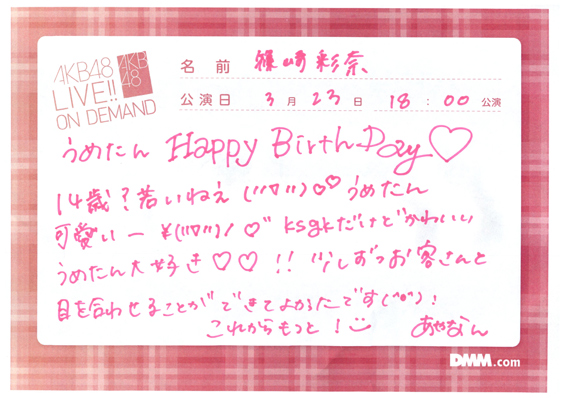 AKB48
LIVE!!
ON DEMAND
AKB
48
名前 篠崎彩奈
公演日 3月23日 18:00公演
うめたん Happy BirthDay♡
14歳?若いねえ("▽")♡♡うめたん
可愛いー ¥("▽")/ ♡" ksgkだけどかわいい
うめたん大好き♡♡!! 少しずつお客さんと
目を合わせることができてよかったです(^o^)!
これからもっと!
あやなん
DMM.com